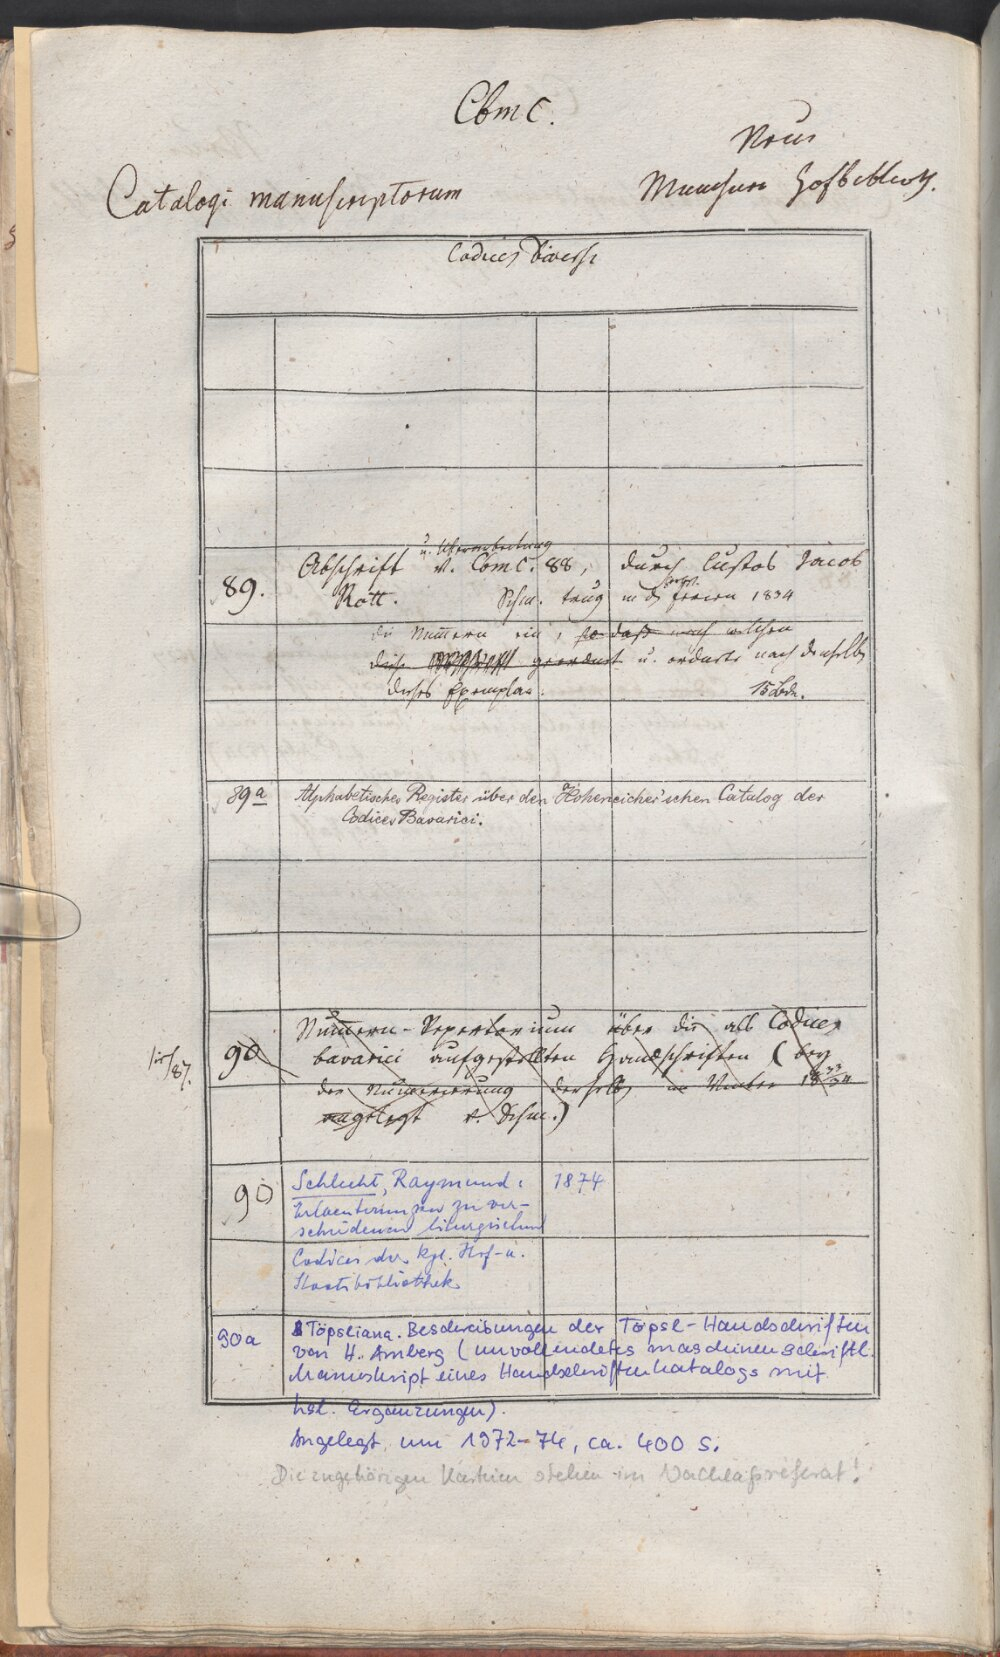 CbmC.
Neue
Catalogi manuscriptorum
Münchner Hofbiblioth.
Codices diversi
u. Überarbeitung
89. Abschrift v. Cbmc. 88, durch Custos Jacob
Rott. Schm. trug in d. Ferien 1834
die Num̅ern ein, so daß nach welchen
diese geordnet u. ordnete nach denselb.
dieses Exemplar. 15 Bde.
89a Alphabetisches Register über den Hoheneicher'schen Catalog der
Codices Bavarici.
90 Num̅ern-Repertorium über die als Codices
bavarici aufgestellten Handschriften (bey
der Numerierung derselb. im Winter 1833/34
angelegt v. Schm.)
90 Schlecht, Raymund: 1874
Erlaeuterungen zu ver-
schiedenen liturgischen
Codices der kgl. Hof- u.
Staatsbibliothek
90a Töpsliana. Beschreibungen der Töpsl-Handschriften
von H. Amberg (unvollendetes maschinenschriftl.
Manuskript eines Handschriftenkatalogs mit
hsl. Ergänzungen).
Angelegt um 1972-74, ca. 400 S.
Die zugehörigen Karteien stehen im Nachlaßreferat!